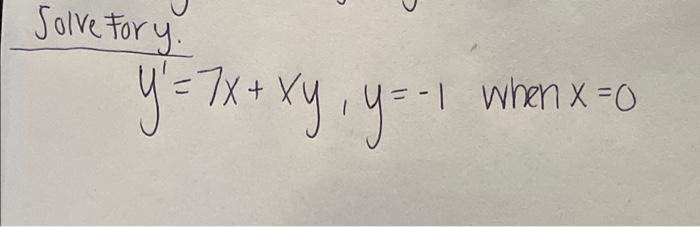 Solve for y.
y' = 7x + xy, y = -1 when x = 0